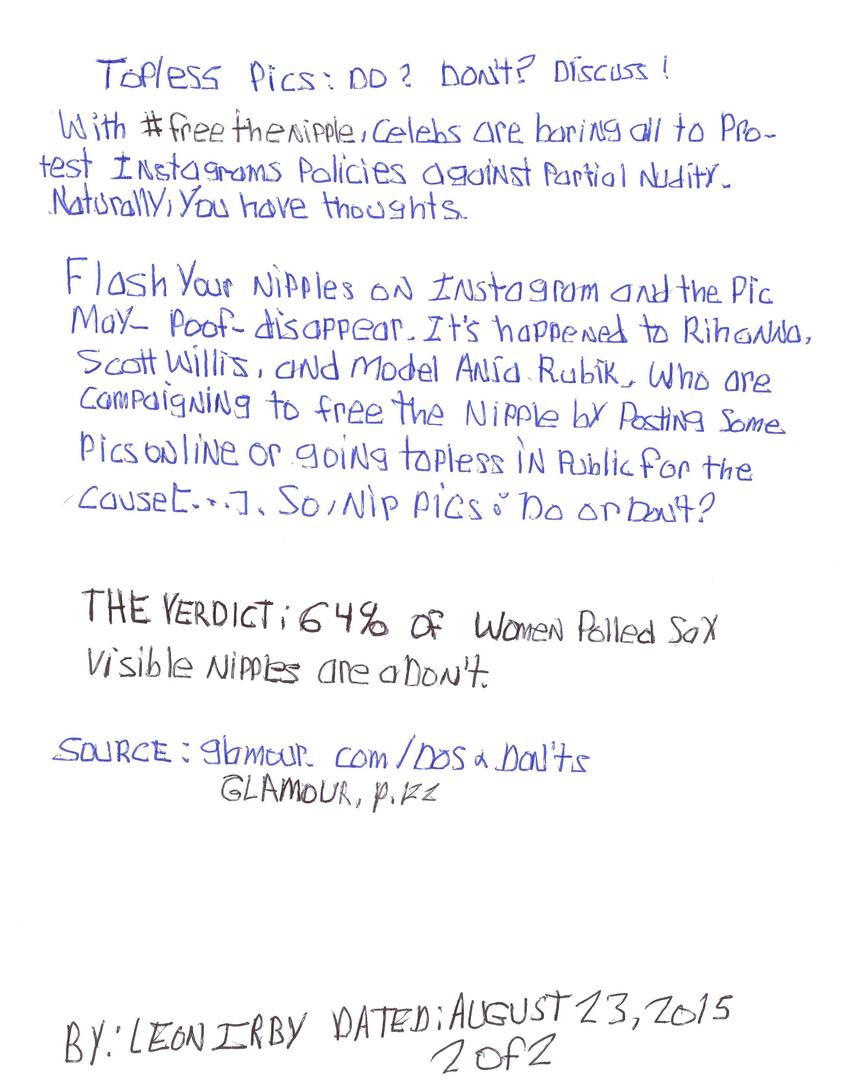 Topless Pics: DO? Don't? Discuss!
With #freethenipple, Celebs are baring all to Pro-
test Instagrams Policies against Partial Nudity.
Naturally, You have thoughts.
Flash Your Nipples on Instagram and the Pic
May- Poof- disappear. It's happened to Rihanna,
Scott Willis, and Model Ania Rubik, Who are
campaigning to free the Nipple by Posting Some
Pics online or going topless in Public for the
cause[...]. So, Nip Pics: Do or Don't?
THE VERDICT: 64% OF Women Polled Say
Visible Nipples are a Don't.
SOURCE: glamour.com/Dos & Don'ts
GLAMOUR, p.
BY: LEON IRBY DATED: AUGUST 23, 2015
2 of 2